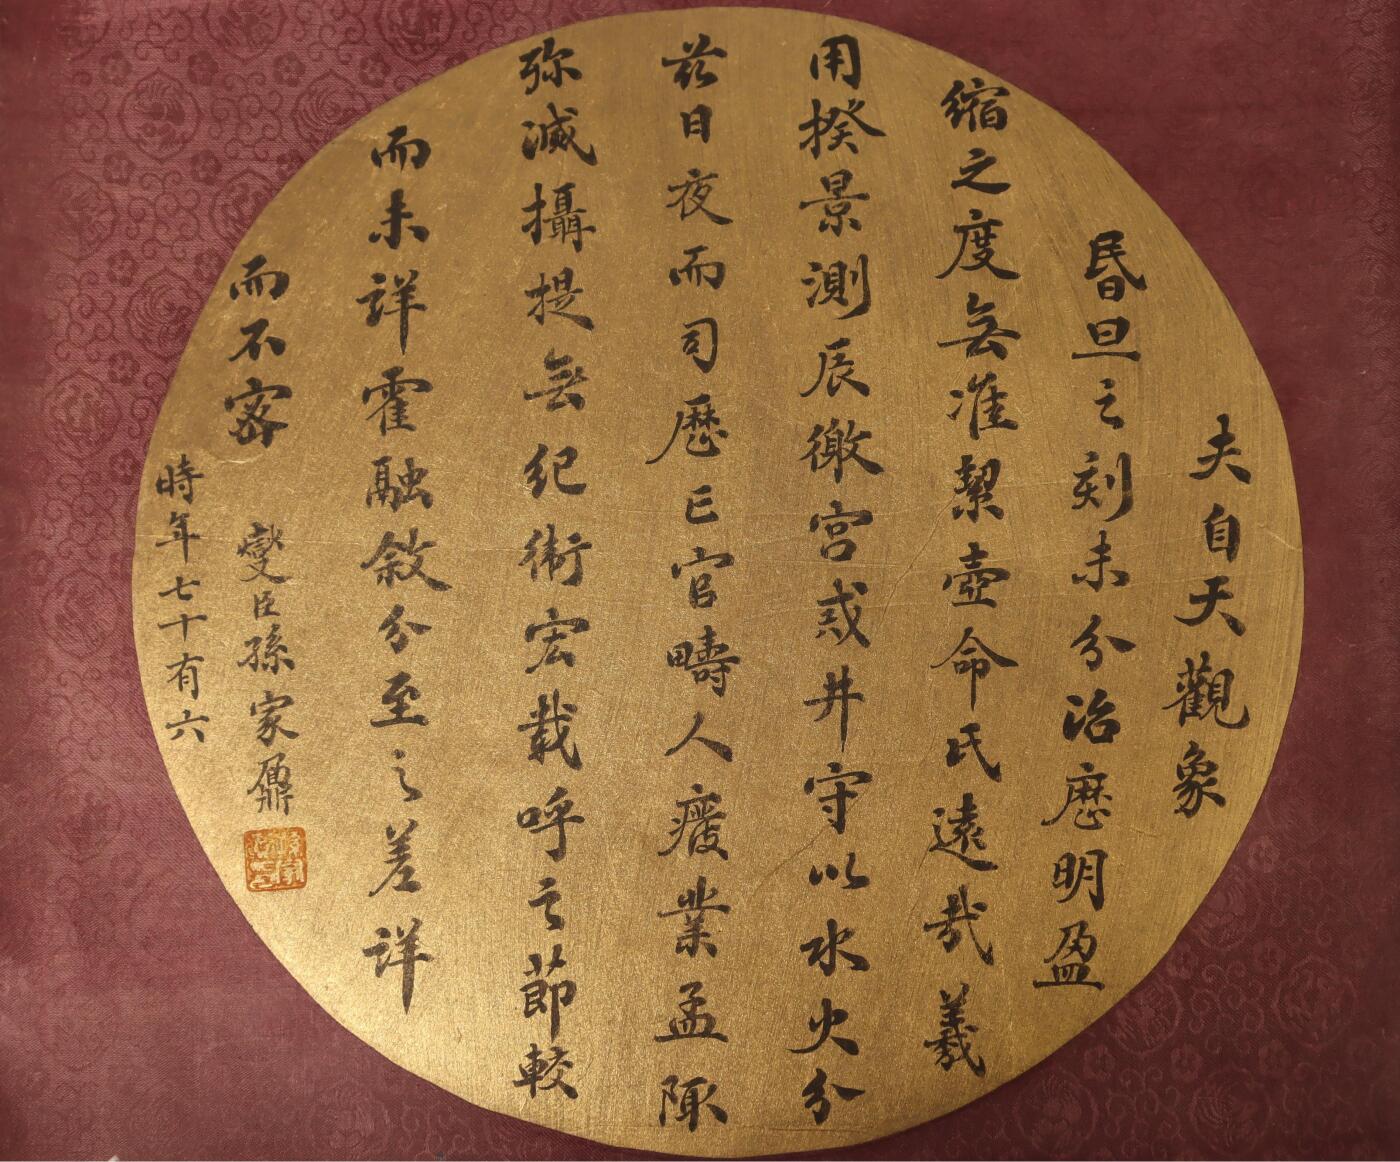 夫自天觀象
昏旦之刻未分治厯明盈
縮之度無准挈壺命氏遠哉義
用揆景測辰徼宮戒井守以水火分
茲日夜而司厯亡官疇人廢業孟陬
殄滅攝提無紀衛宏載呼之節較
而未詳霍融敘分至之差詳
而不密
燮臣孫家鼐
時年七十有六